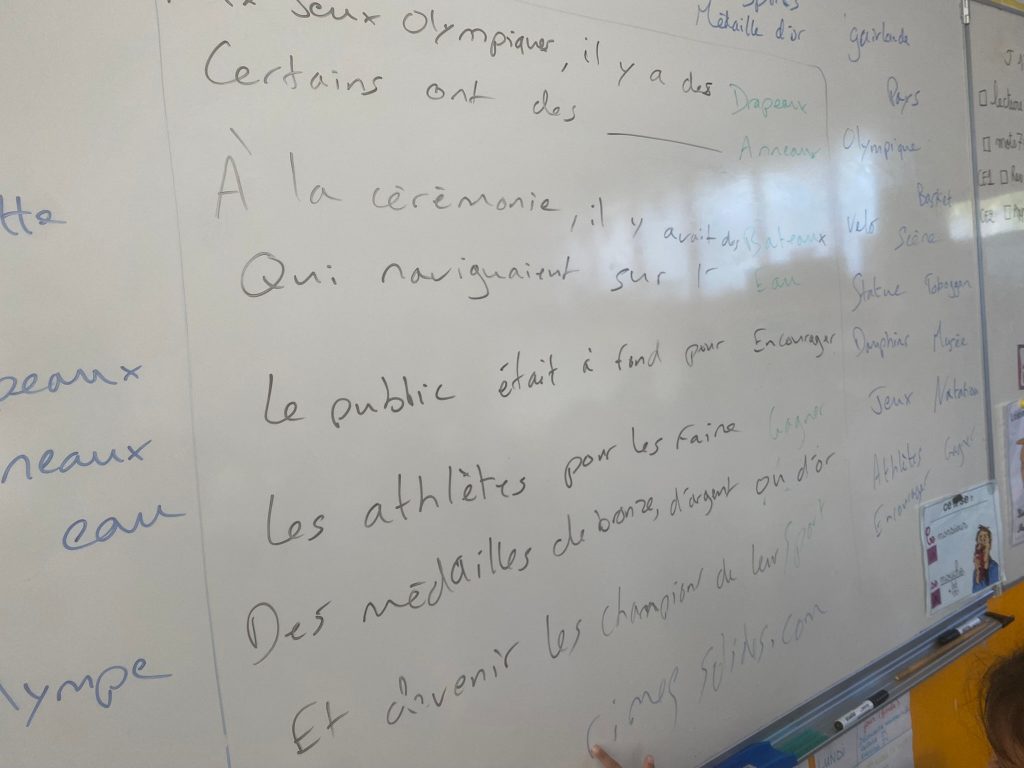 Jeux Olympiques, il y a des Drapeaux
Certains ont des Anneaux
À la cérémonie, il y avait des Bateaux
Qui naviguaient sur l' Eau
Le public était à fond pour Encourager
Les athlètes pour les Faire Gagner
Des médailles de bronze, d'argent ou d'or
Et devenir les champion de leur Sport
Sports
Médaille d'or guirlande
Pays
Olympique
Basket
Vélo Scène
Statue Toboggan
Dauphins Marée
Jeux Natation
Athlètes Gagner
Encourager
tte
peaux
neaux
eau
lympe
monsieur